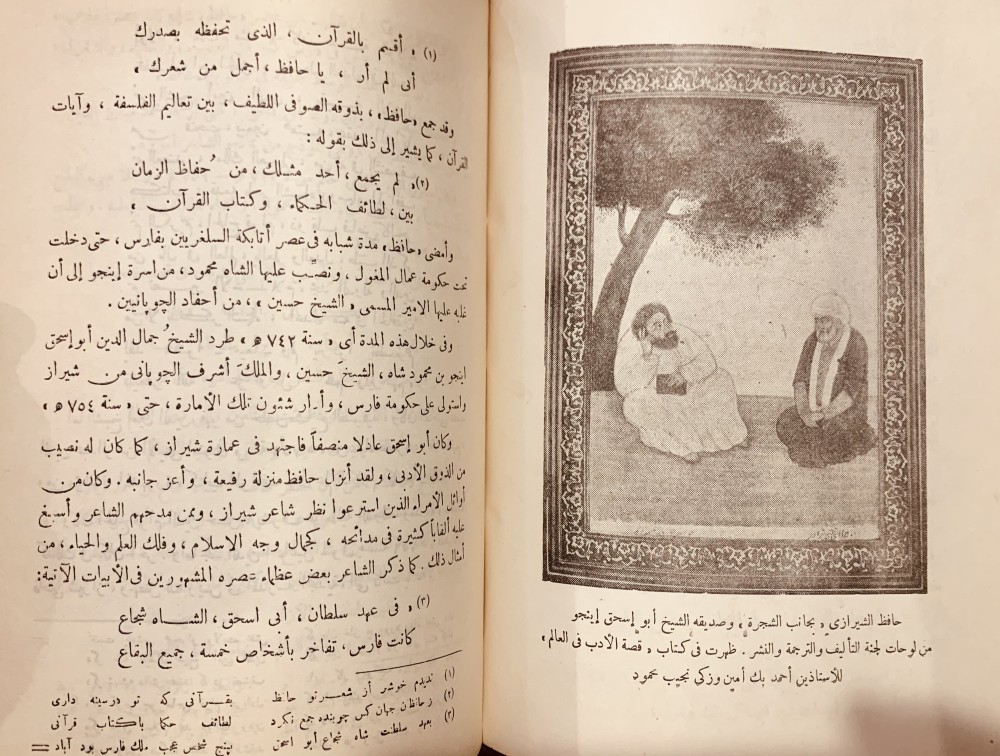 (١) « أقسم بالقرآن ، الذى تحفظه بصدرك
أنى لم أر ، يا حافظ ، أجمل من شعرك »
وقد جمع «حافظ» ، بذوقه الصوفى اللطيف ، بين تعاليم الفلسفة ، وآيات
القرآن ، كما يشير إلى ذلك بقوله :
(٢) « لم يجمع ، أحد مثلك ، من حُفاظ الزمان
بين ، لطائف الحكماء ، وكتاب القرآن »
وأمضى «حافظ» مدة شبابه فى عصر أتابكة السلغريين بفارس ، حتى دخلت
تحت حكومة عمال المغول ، ونصّب عليها الشاه محمود ، من أسرة إينجو إلى أن
غلبه عليها الامير المسمى « الشيخ حسين » ، من أحفاد الچوپانيين .
وفى خلال هذه المدة أى « سنة ٧٤٢ ه » طرد الشيخُ جمال الدين أبو إسحق
اينجو بن محمود شاه ، الشيخَ حسين ، والملكَ أشرف الچوپانى من شيراز
واستولى على حكومة فارس ، وأدار شئون تلك الامارة ، حتى « سنة ٧٥٤ ه »
وكان أبو إسحق عادلا منصفاً فاجتهد فى عمارة شيراز ، كما كان له نصيب
من الذوق الأدبى ، ولقد أنزل حافظ منزلة رفيعة ، وأعز جانبه . وكان من
أوائل الامراء الذين استرعوا نظر شاعر شيراز ، وممن مدحهم الشاعر وأسبغ
عليه ألقاباً كثيرة فى مدائحه ، كجمال وجه الاسلام ، وفلك العلم والحياء ، من
أمثال ذلك . كما ذكر الشاعر بعض عظماء عصره المشهورين فى الأبيات الآتية :
(٣) « فى عهد سلطان ، أبى اسحق ، الشاه شجاع
كانت فارس ، تفاخر بأشخاص خمسة ، جميع البقاع
(١) نديدم خوشتر از شعر تو حافظ بقرآنى كه تو درسينه دارى
(٢) ز حافظان جهان كس چو بنده جمع نكرد لطائف حكما باكتاب قرآنى
(٣) بعهد سلطنت شاه شجاع أبو اسحق بپنج شخص عجب ملك فارس بود آباد =
حافظ الشيرازى « بجانب الشجرة » وصديقه الشيخ أبو إسحق إينجو
من لوحات لجنة التأليف والترجمة والنشر . ظهرت فى كتاب « قصة الأدب فى العالم »
للأستاذين أحمد بك أمين وزكى نجيب محمود